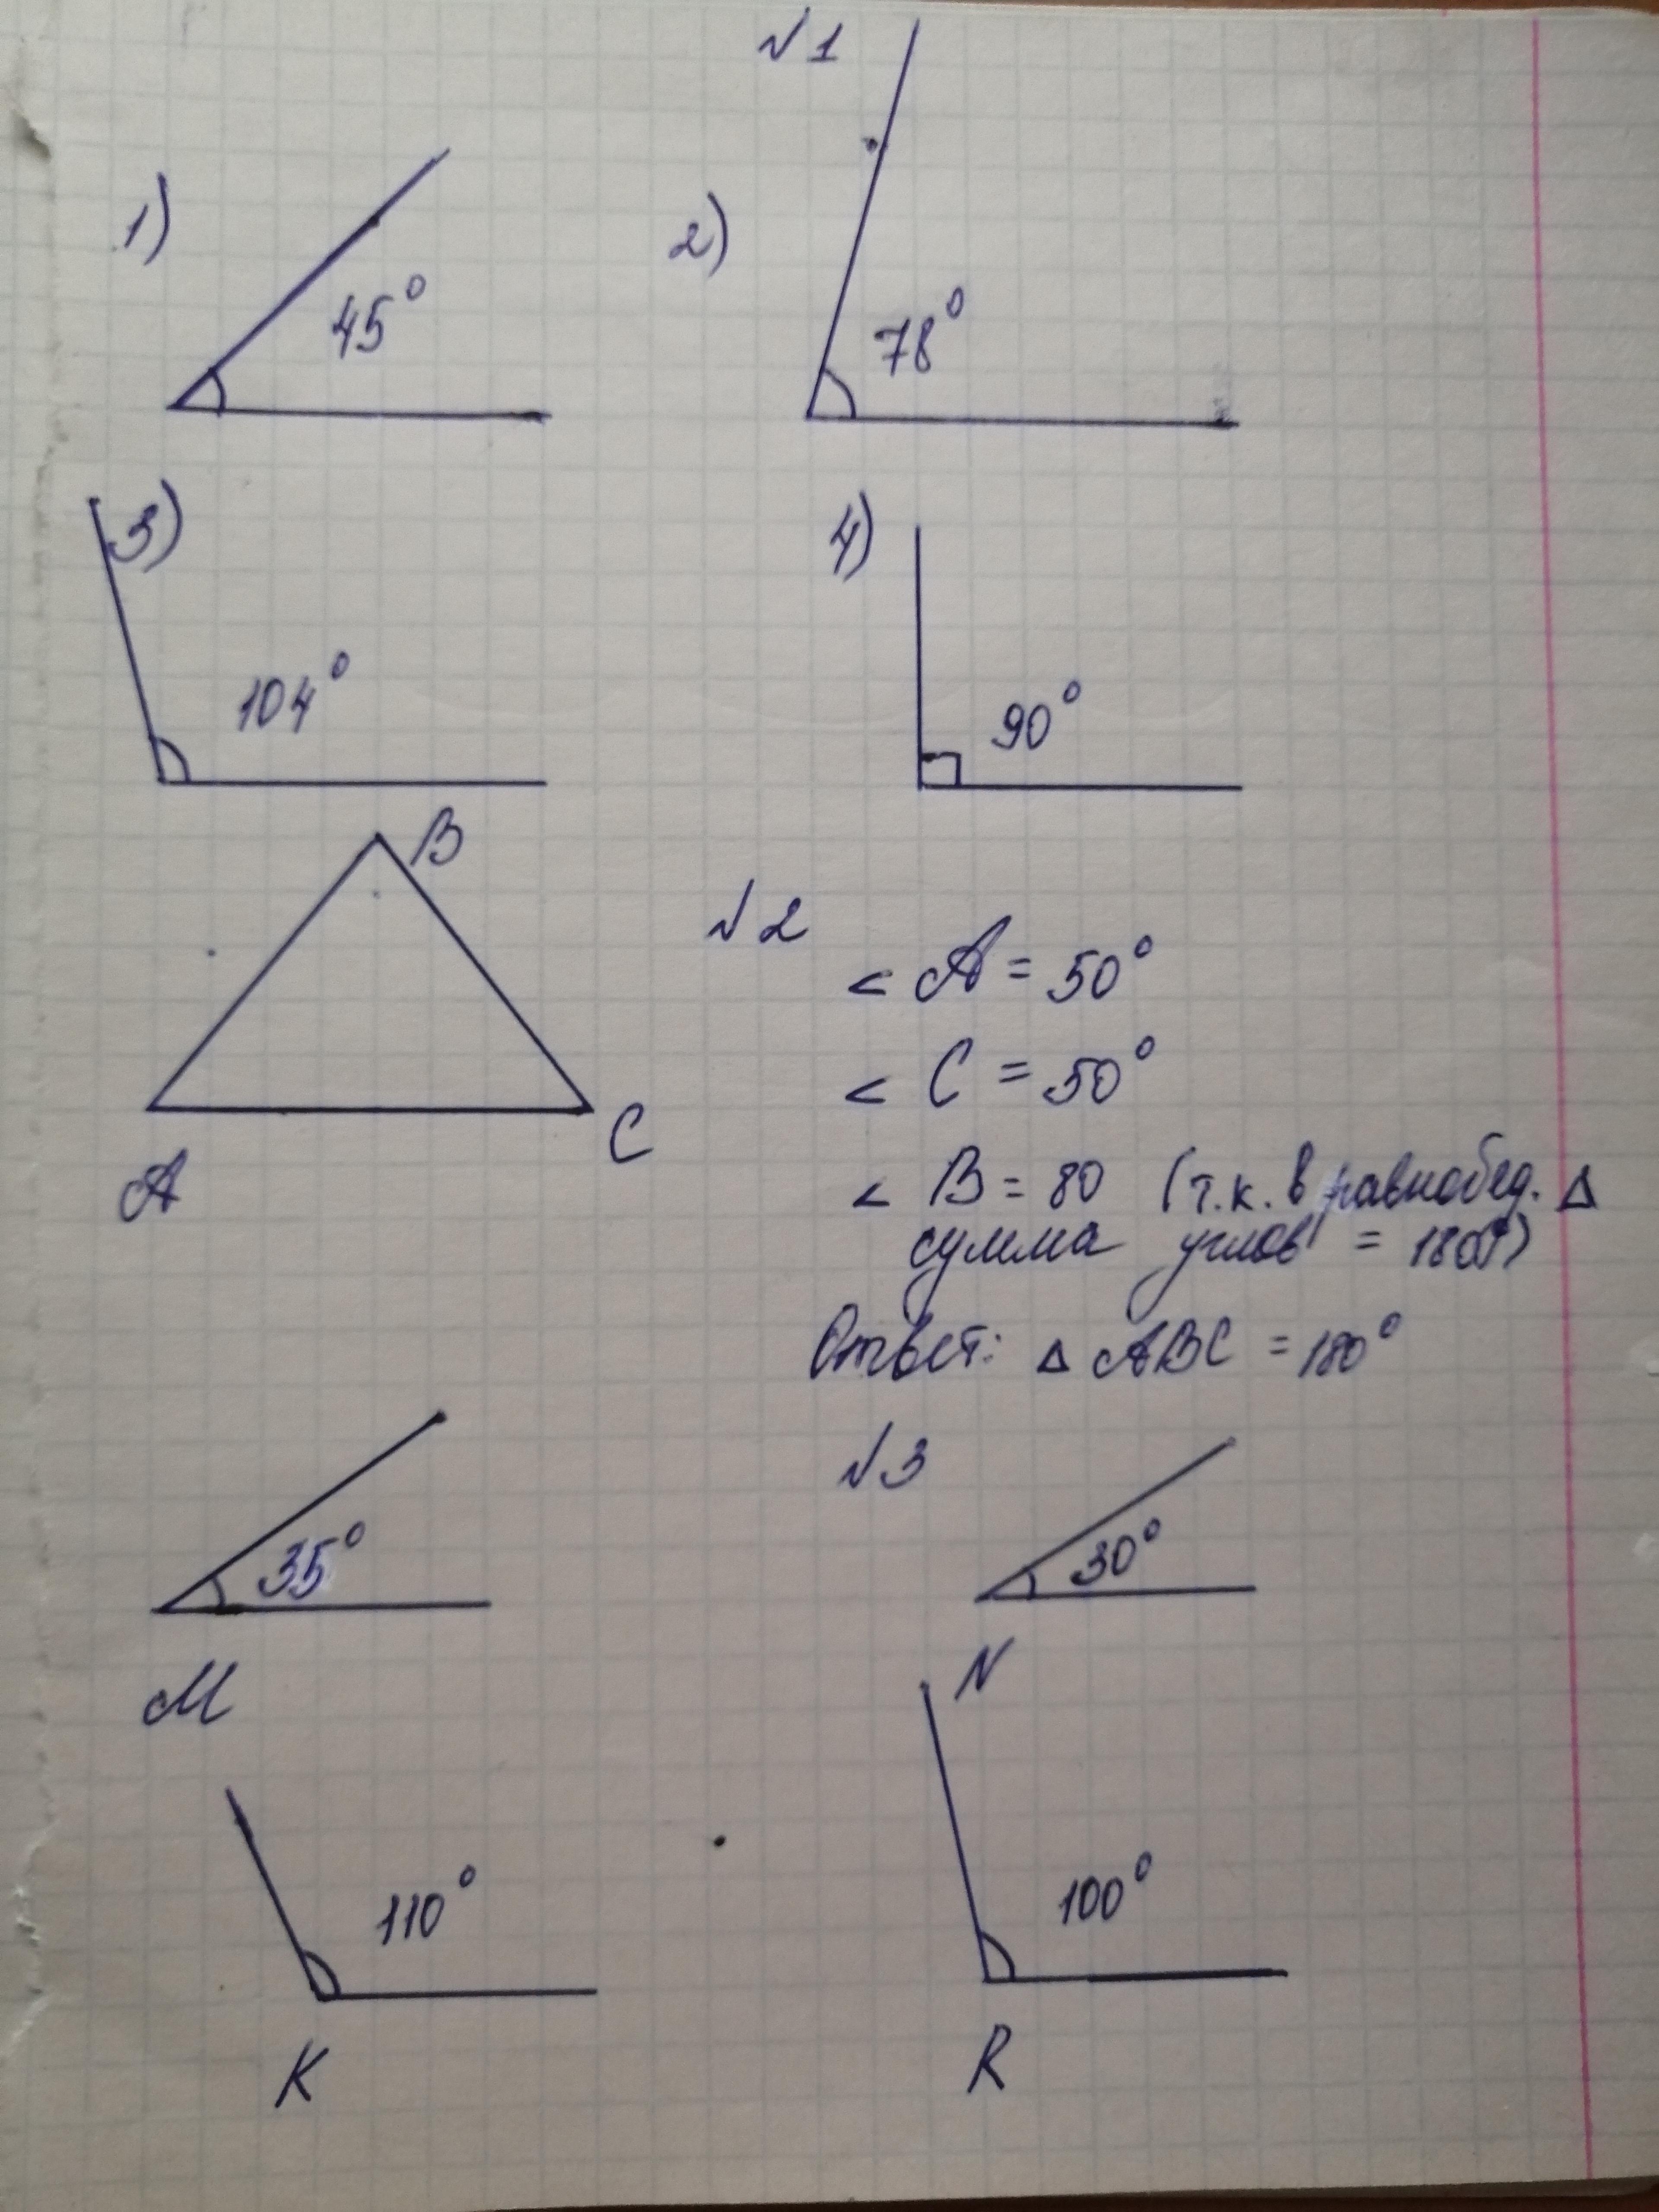 №1
1)
45°
2)
78°
3)
104°
4)
90°
B
A
C
№2
< A = 50°
< C = 50°
< B = 80 (т.к. в равнобед. Δ
сумма углов = 180°)
Ответ: Δ ABC = 180°
№3
35°
M
30°
N
110°
K
100°
R